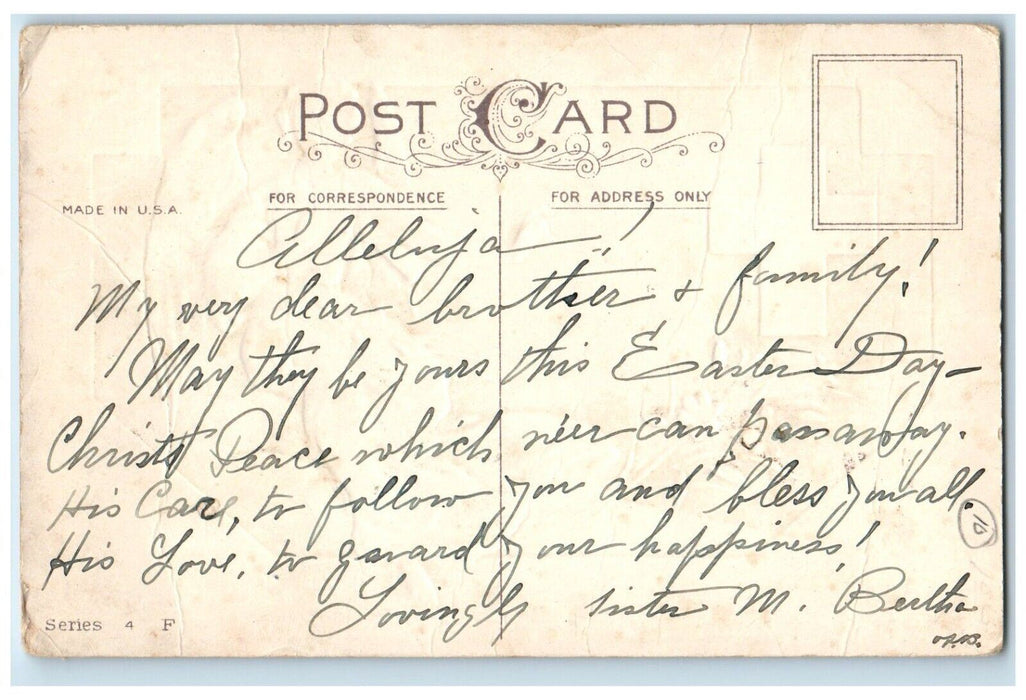 POST CARD
FOR CORRESPONDENCE
FOR ADDRESS ONLY
MADE IN U.S.A.
Alleluja!
My very dear brother & family!
May they be yours this Easter Day—
Christ's Peace which ne'er can pass away.
His Care, to follow you and bless you all.
His Love, to guard your happiness!
Lovingly Sister M. Bertha
O.S.B.
10
Series 4 F